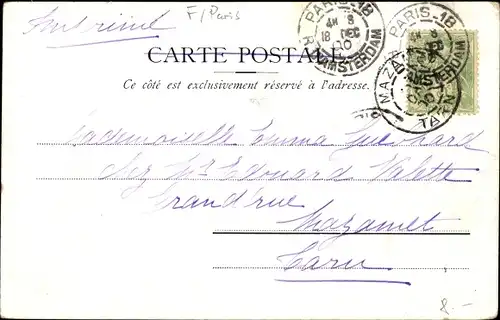 Imprimé
F/Paris
PARIS-18
R. AMSTERDAM
18 DEC 00
PARIS-18
AMSTERDAM
MAZAMET
TARN
CARTE POSTALE
Ce côté est exclusivement réservé à l'adresse.
Mademoiselle Emma
chez Mr Edouard Valette
Grand'rue
Mazamet
Tarn
8.-